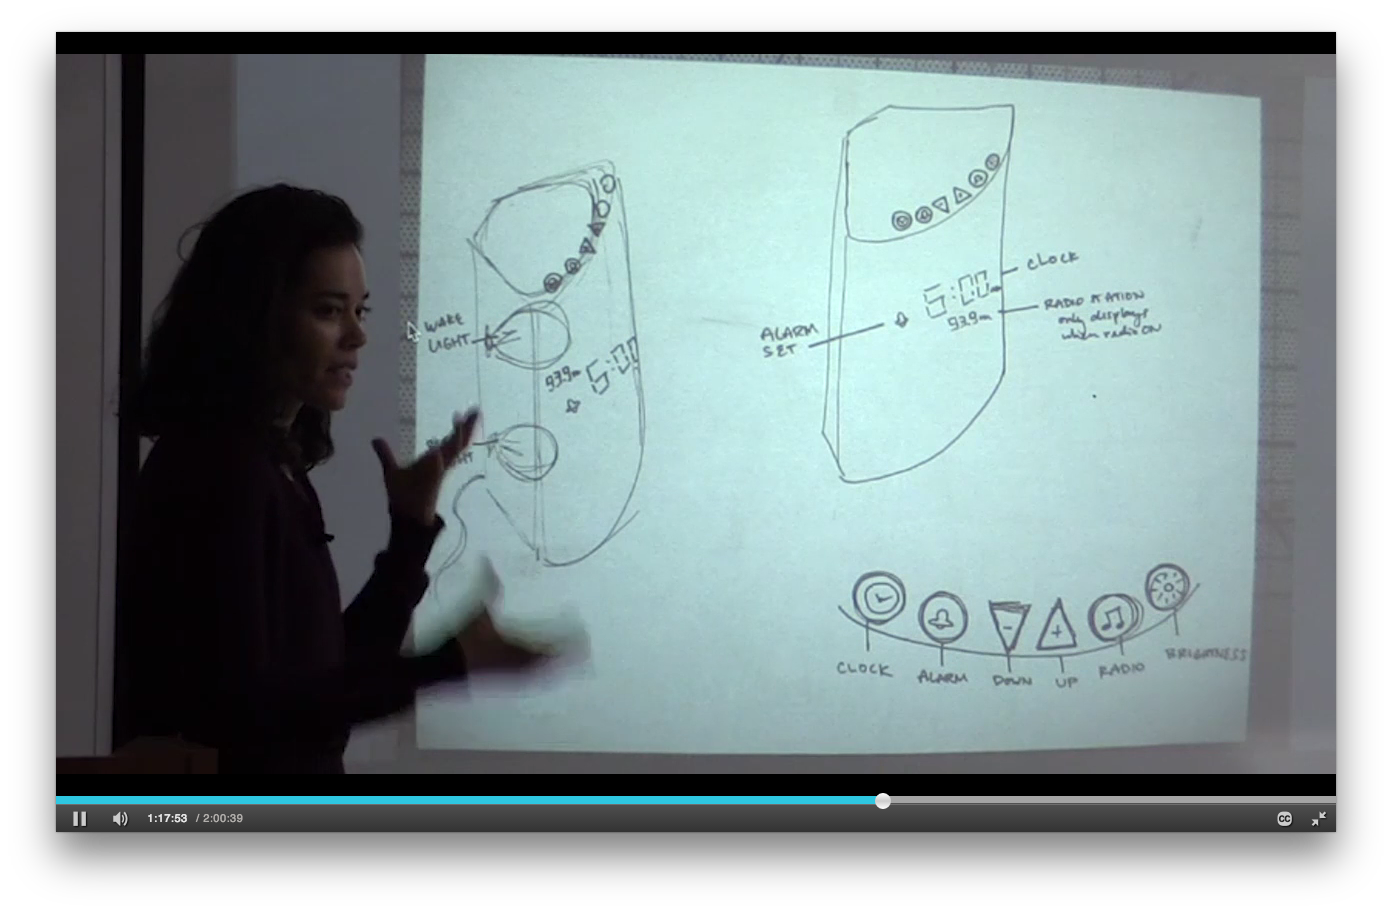 WAKE
LIGHT
93.9m
5:00
ALARM
SET
5:00
93.9m
CLOCK
RADIO STATION
only displays
when radio ON
- +
CLOCK
ALARM
DOWN
UP
RADIO
BRIGHTNESS
1:17:53 / 2:00:39
CC